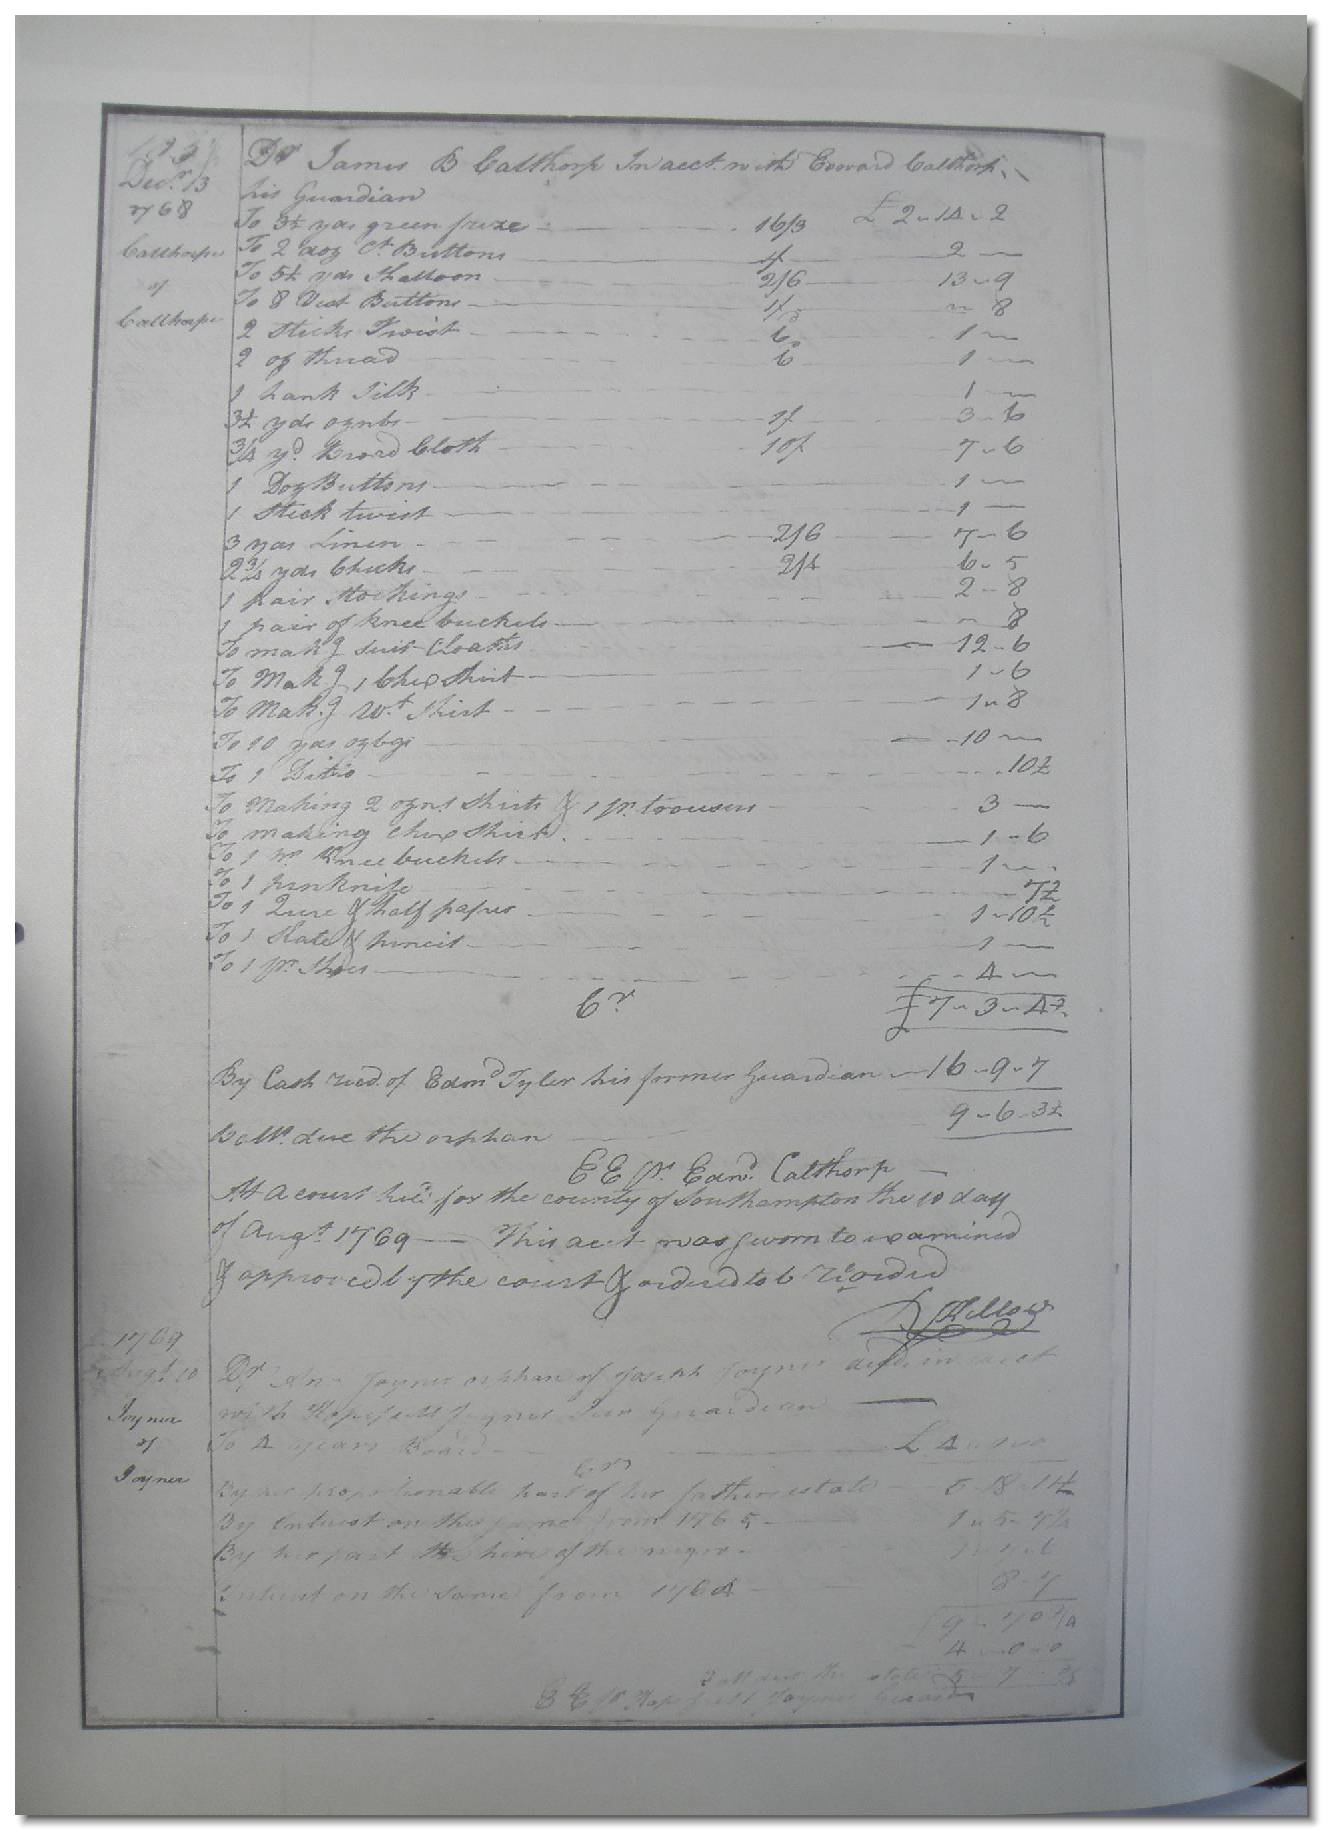 Decr. 13
1768
Calthorpe
of
Calthorpe
Dr James B Calthorp In acct. with Edward Calthorp
his Guardian
To 3½ yds green frize 16/3 £ 2 - 14 - 2
To 2 doz Ct Buttons 1/ 2 -
To 5½ yds Shalloon 2/6 13 - 9
To 8 Vest Buttons 1/ 8
2 Sticks Twist 6 1 -
2 of thread 6 1 -
1 hank Silk 1 -
3½ yds oznbs 1/ 3 - 6
3/4 yd. Broad Cloth 10/ 7 - 6
1 Doz Buttons 1 -
1 Stick twist 1 -
3 yds Linen 2/6 7 - 6
2 3/4 yds Checks 2/4 6 - 5
1 pair Stockings 2 - 8
1 pair of knee buckels 8
To makg suit Cloaths 12 - 6
To Makg 1 Chex Shirt 1 - 6
To Makg Wt. Shirt 1 - 8
To 10 yds ozbgs 10 -
To 1 Ditto 10½
To Making 2 oznb Shirts & 1 pr. trousers 3 -
To making Chex Shirt 1 - 6
To 1 pr Knee buckels 1 -
To 1 penknife 7½
To 1 Quire & half paper 1 - 10½
To 1 Slate & pencil 1 -
To 1 pr. Shoes 4 -
Cr £ 7 - 3 - 4½
By Cash recd. of Edmd Tyler his former Guardian 16 - 9 - 7
9 - 6 - 3½
Balle. due the orphan
E E pr. Edwd. Calthorp
At a court held for the county of Southampton the 10 day
of Augt. 1769 This acct was sworn to examined
& approved by the court & ordered to b recorded
1769
Augt. 10
Joyner
of
Joyner
Dr Ann Joyner orphan of Joseph Joyner decd. in acct
with Hopefull Joyner her Guardian
To 4 years Board £ 4
Cr
By her proportionable part of her fathers estate 5 - 18 - 1½
By Interest on the same from 1765 1 - 5
By her part the hire of the negro
Interest on the same from 1764 8 - 7
9
4 - 0 - 0
Ball due the
E E pr Hopefull Joyner Guard